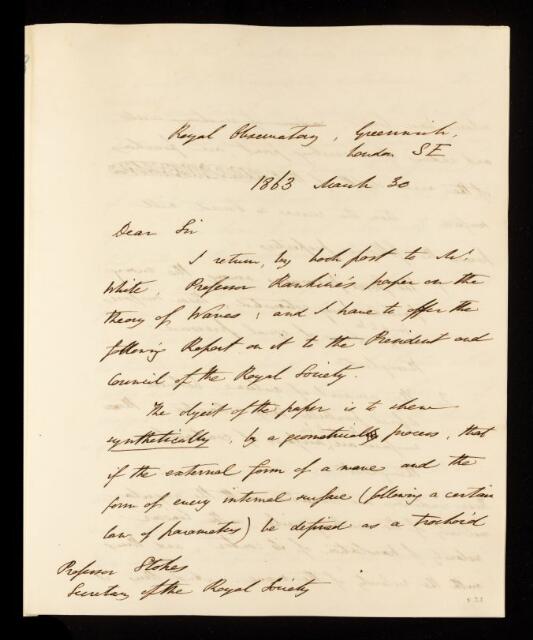 Royal Observatory, Greenwich,
London SE
1863 March 30
Dear Sir
I return, by book post to Mr
White, Professor Rankine's paper on the
theory of Waves; and I have to offer the
following Report on it to the President and
Council of the Royal Society.
The object of the paper is to shew
synthetically, by a geometrical process, that
if the external form of a wave and the
form of every internal surface (following a certain
law of parameters) be defined as a trochoid
Professor Stokes
Secretary of the Royal Society